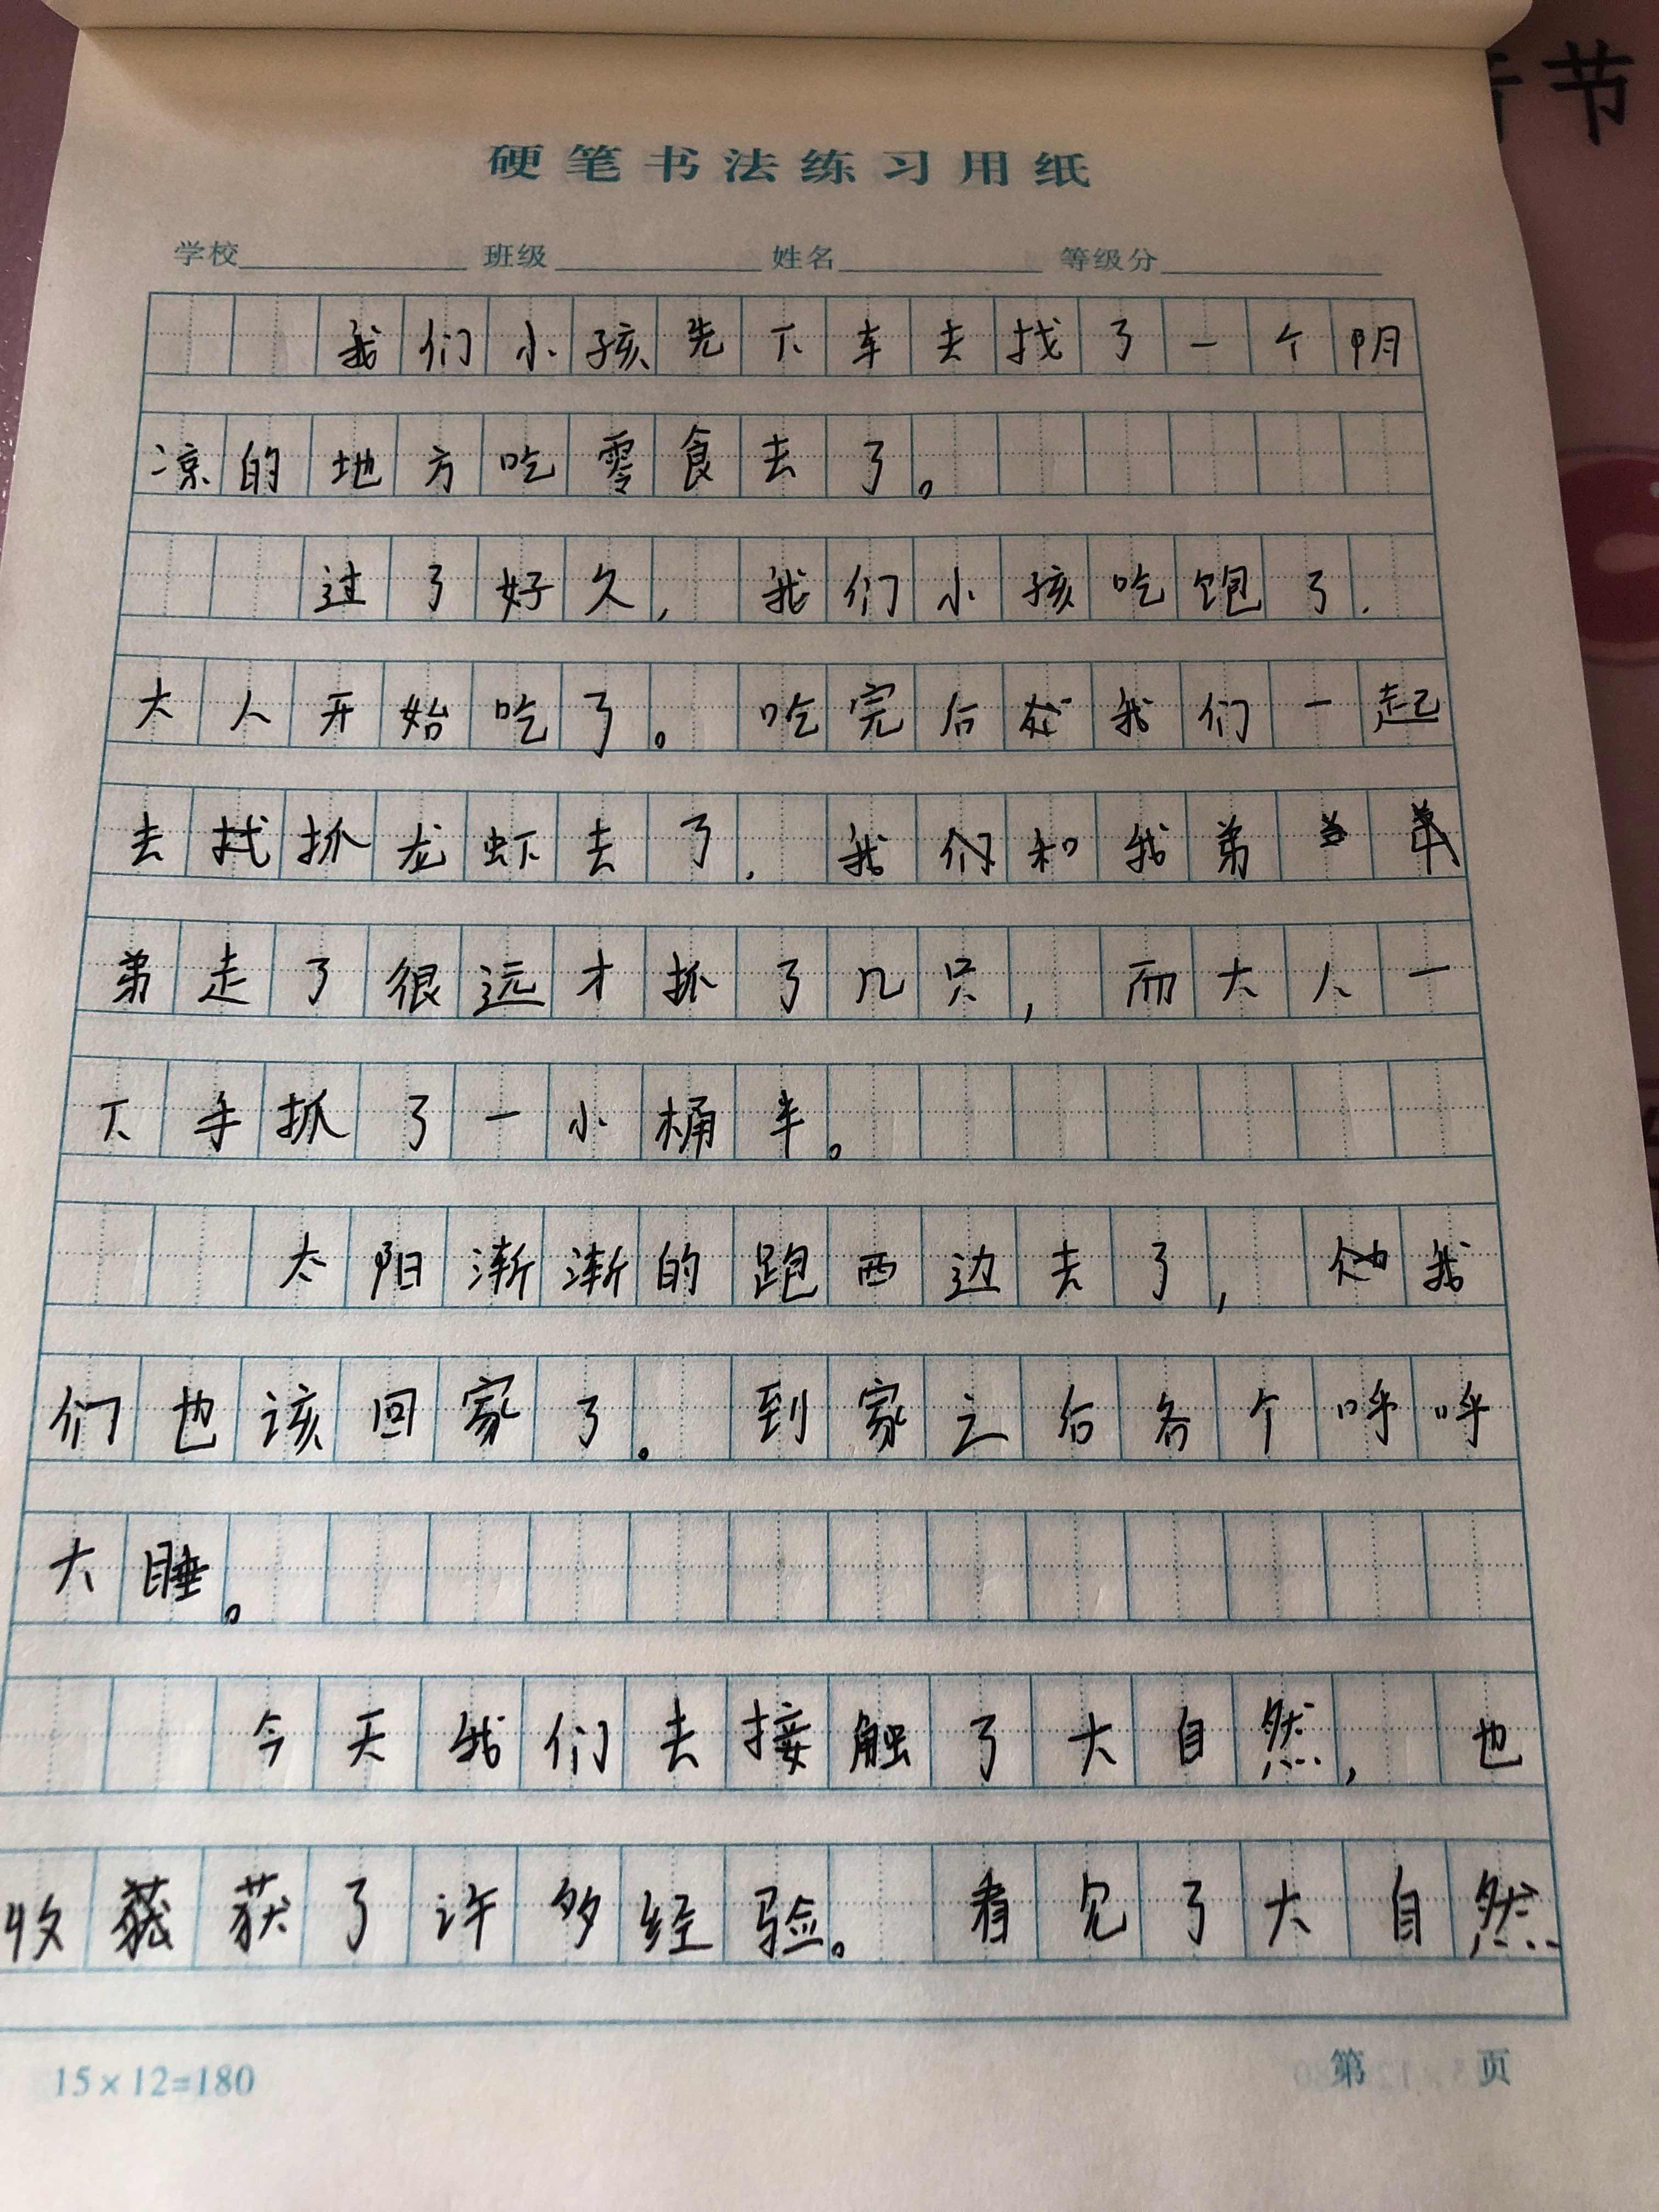 节
硬笔书法练习用纸
学校 班级 姓名 等级分
我们小孩先下车去找了一个阴
凉的地方吃零食去了。
过了好久，我们小孩吃饱了，
大人开始吃了。吃完后我们一起
去抓龙虾去了，我和我弟
弟走了很远才抓了几只，而大人一
下手抓了一小桶半。
太阳渐渐的跑西边去了，我
们也该回家了。到家之后各个呼呼
大睡。
今天我们去接触了大自然，也
收获了许多经验。看见了大自然
15×12=180
第 页